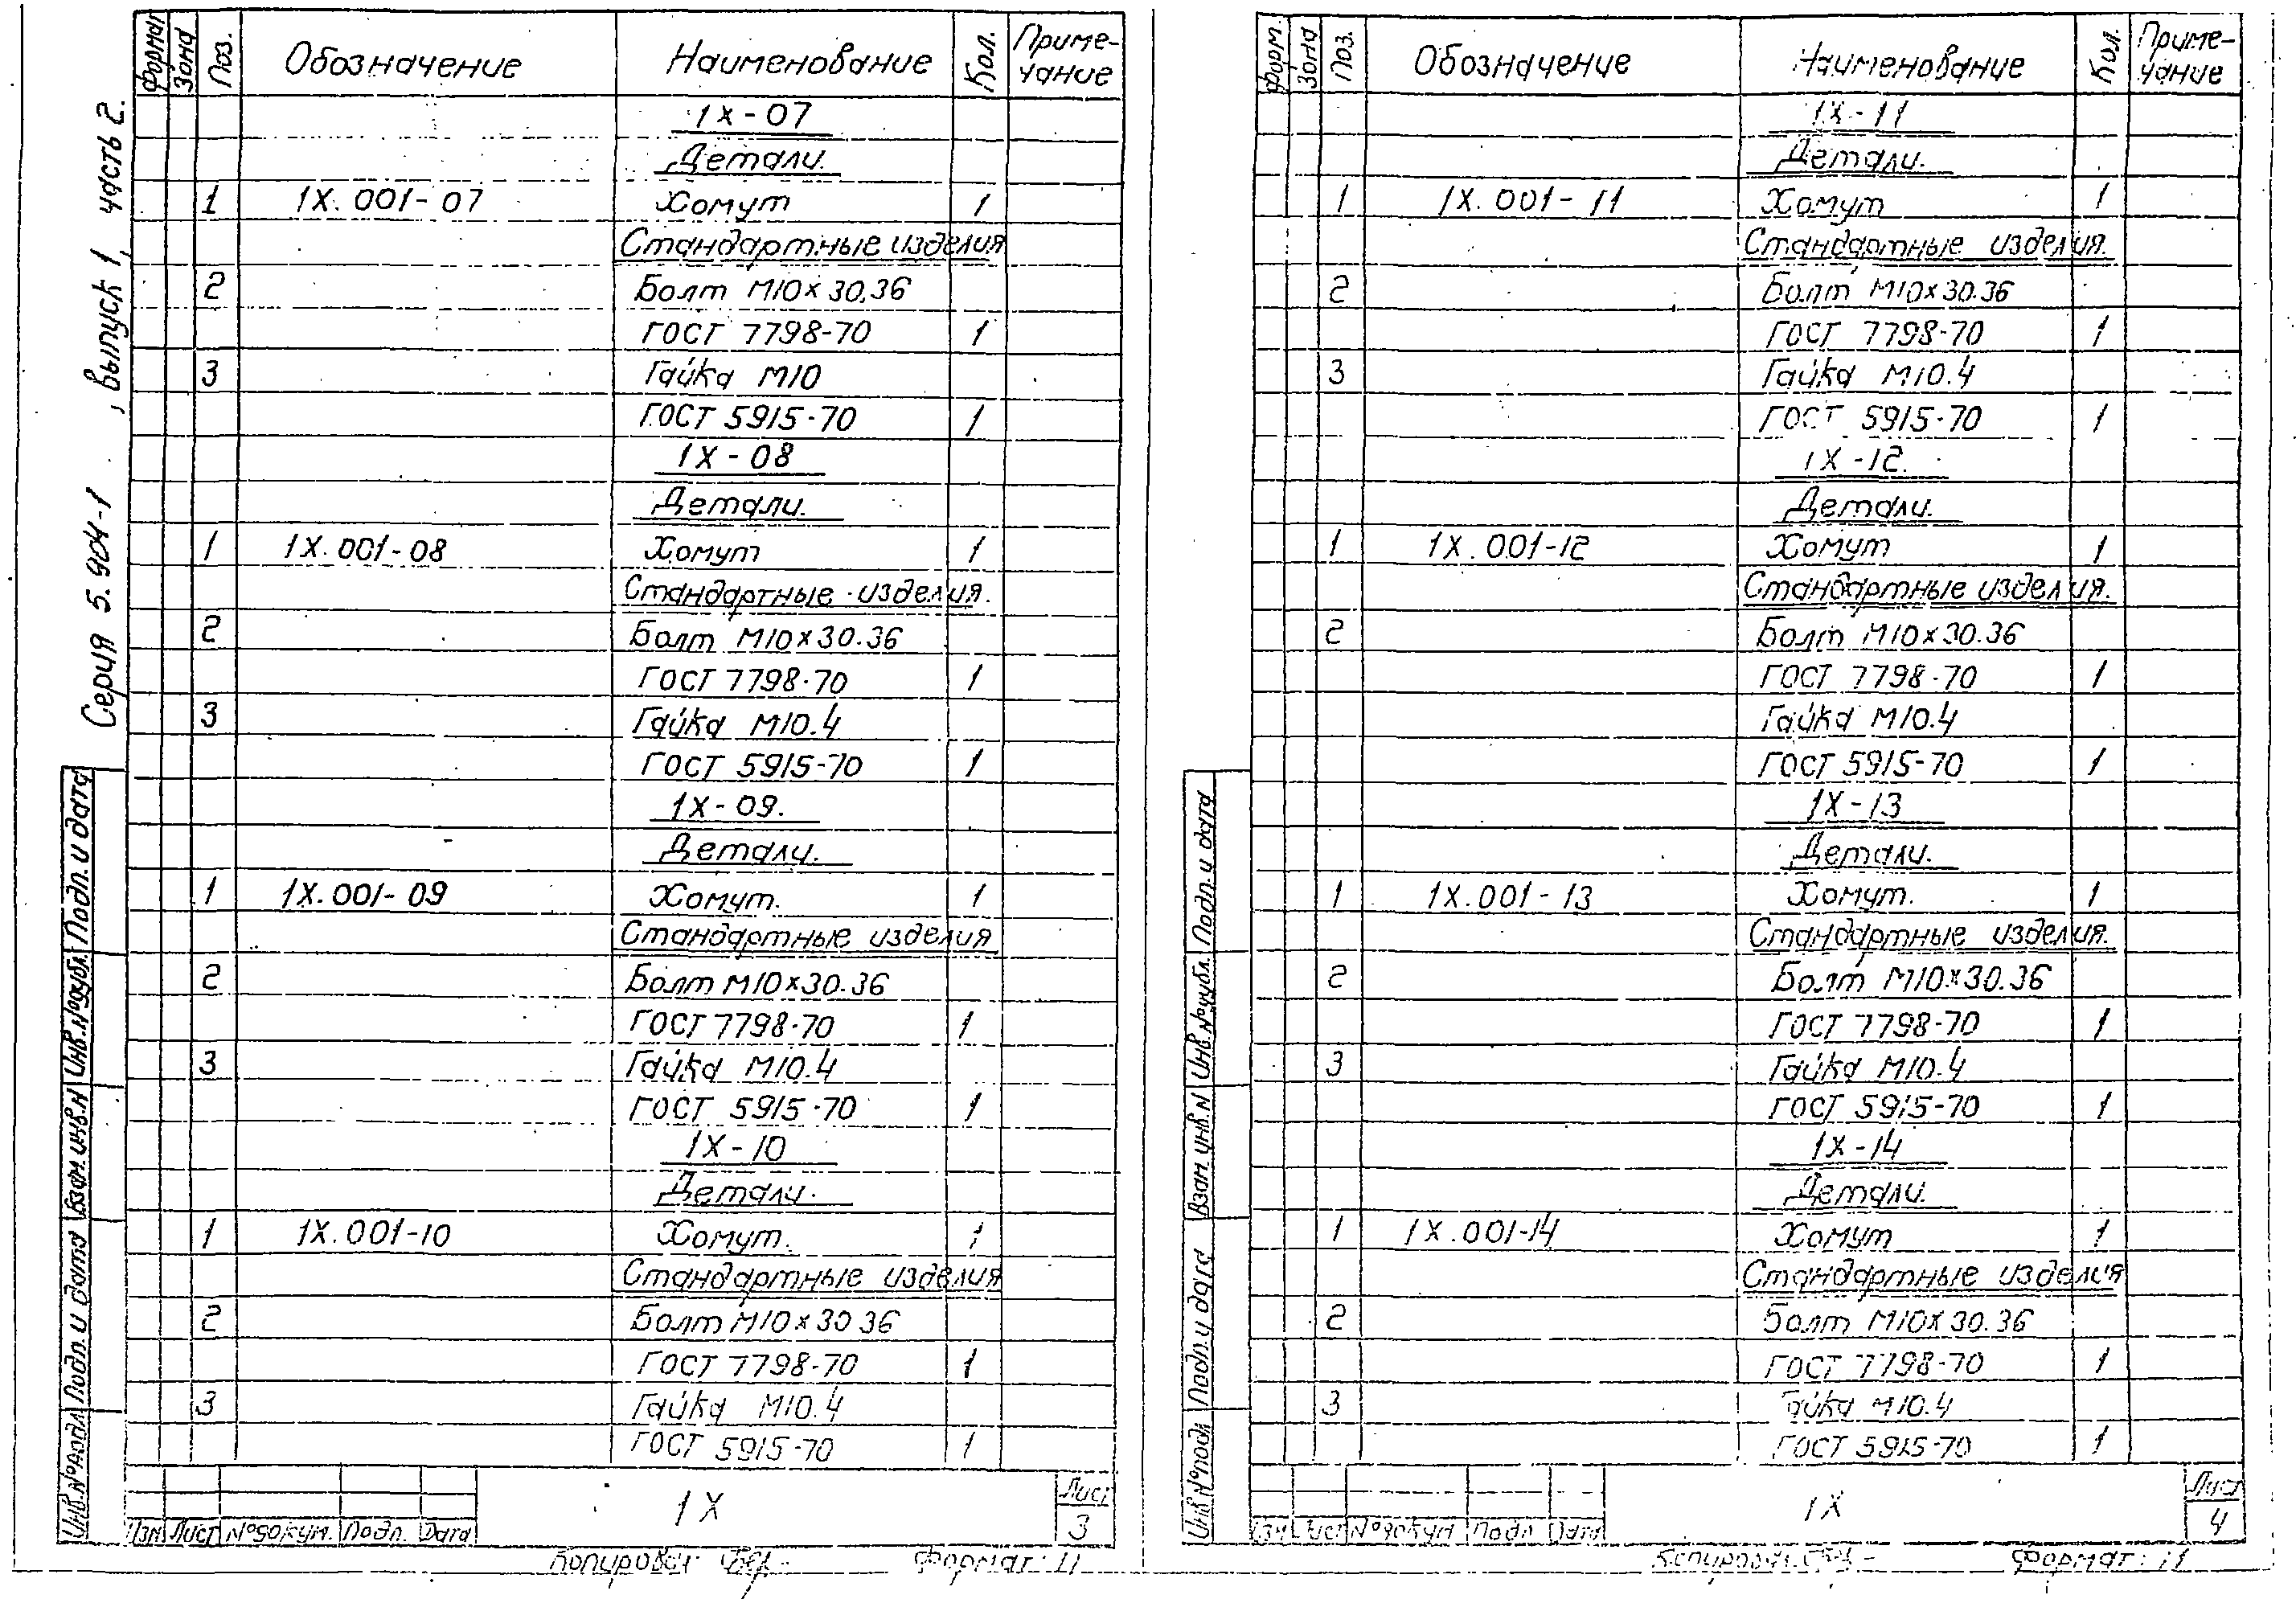 Серия 5.904-1 , выпуск 1, часть 2.
Формат Зона Поз. Обозначение Наименование Кол. Приме-
чание
1Х-07
Детали.
1 1Х.001-07 Хомут 1
Стандартные изделия
2 Болт М10х30.36
ГОСТ 7798-70 1
3 Гайка М10
ГОСТ 5915-70 1
1Х-08
Детали.
1 1Х.001-08 Хомут 1
Стандартные изделия.
2 Болт М10х30.36
ГОСТ 7798-70 1
3 Гайка М10.4
ГОСТ 5915-70 1
1Х-09.
Детали.
1 1Х.001-09 Хомут. 1
Стандартные изделия
2 Болт М10х30.36
ГОСТ 7798-70 1
3 Гайка М10.4
ГОСТ 5915-70 1
1Х-10
Детали.
1 1Х.001-10 Хомут. 1
Стандартные изделия
2 Болт М10х30 36
ГОСТ 7798-70 1
3 Гайка М10.4
ГОСТ 5915-70 1
Подп. и дата
Инв.№дубл.
Взам.инв.N
Подп. и дата
Инв.№подл
1Х
Лист
3
Изм Лист №докум. Подп. Дата
Копировал Формат: 11
Форм. Зона Поз. Обозначение Наименование Кол. Приме-
чание
1Х-11
Детали.
1 1Х.001-11 Хомут 1
Стандартные изделия.
2 Болт М10х30.36
ГОСТ 7798-70 1
3 Гайка М10.4
ГОСТ 5915-70 1
1Х-12.
Детали.
1 1Х.001-12 Хомут 1
Стандартные изделия.
2 Болт М10х30.36
ГОСТ 7798-70 1
Гайка М10.4
ГОСТ 5915-70 1
1Х-13
Детали.
1 1Х.001-13 Хомут. 1
Стандартные изделия.
2 Болт М10х30.36
ГОСТ 7798-70 1
3 Гайка М10.4
ГОСТ 5915-70 1
1Х-14
Детали.
1 1Х.001-14 Хомут 1
Стандартные изделия
2 Болт М10х30.36
ГОСТ 7798-70 1
3 Гайка М10.4
ГОСТ 5915-70 1
Подп. и дата
Инв.№дубл.
Взам.инв.N
Подп. и дата
Инв.№подл
1Х
Лист
4
Изм Лист №докум Подп Дата
Копировал Формат: 11